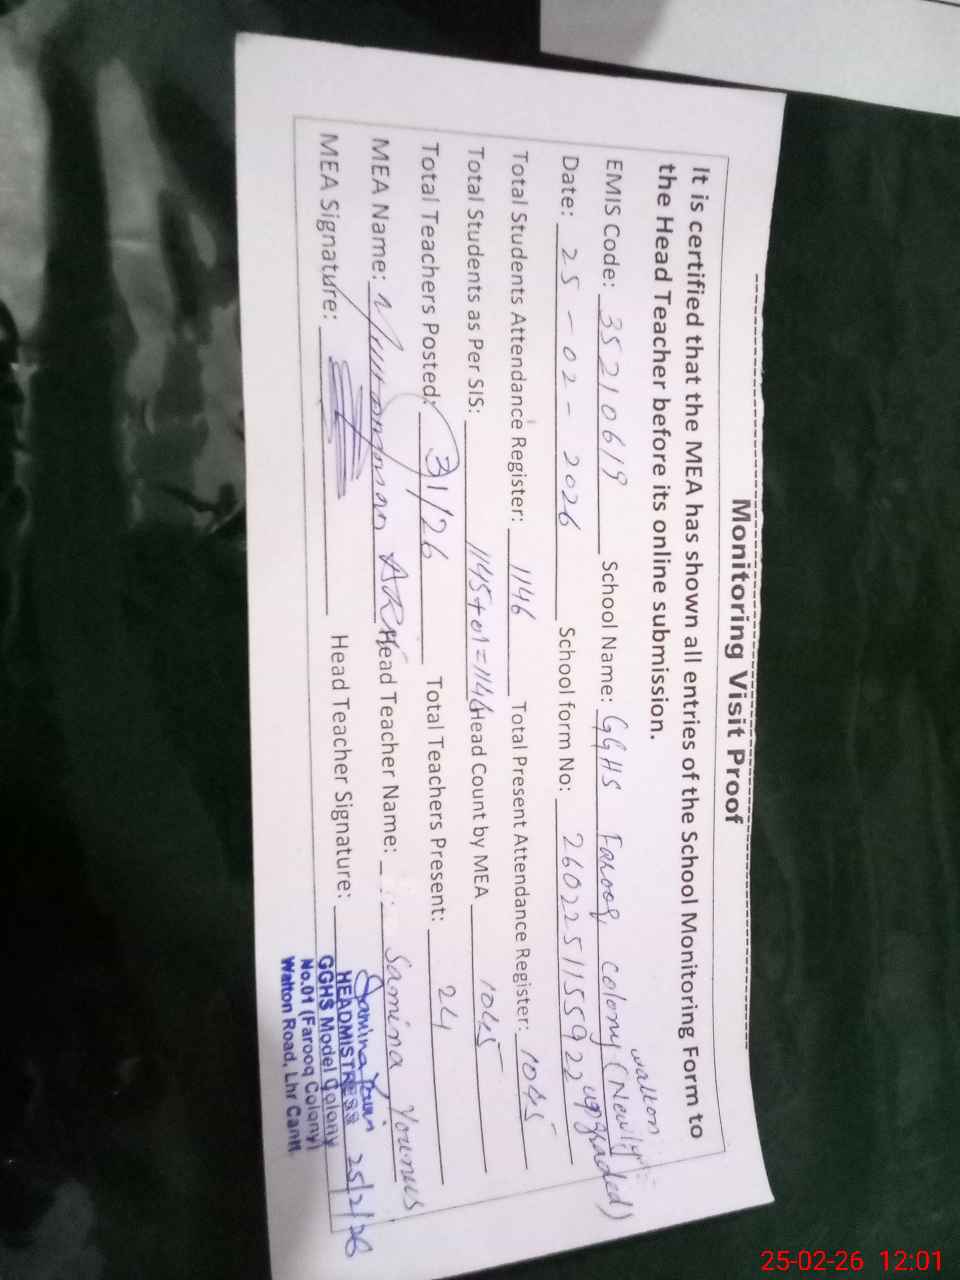 Monitoring Visit Proof
It is certified that the MEA has shown all entries of the School Monitoring Form to
the Head Teacher before its online submission.
walton
EMIS Code: 35210619 School Name: GGHS Farooq colony (Newly upgraded)
Date: 25-02-2026 School form No: 2602251155922
Total Students Attendance Register: 1146 Total Present Attendance Register: 1045
Total Students as Per SIS: 1145+01=1146 Head Count by MEA 1045
Total Teachers Posted: 31/26 Total Teachers Present: 24
MEA Name: Head Teacher Name: Samina Younus
MEA Signature: Head Teacher Signature:
HEADMISTRESS 25/2/26
GGHS Model Colony
No.01 (Farooq Colony)
Walton Road, Lhr Cantt
25-02-26 12:01